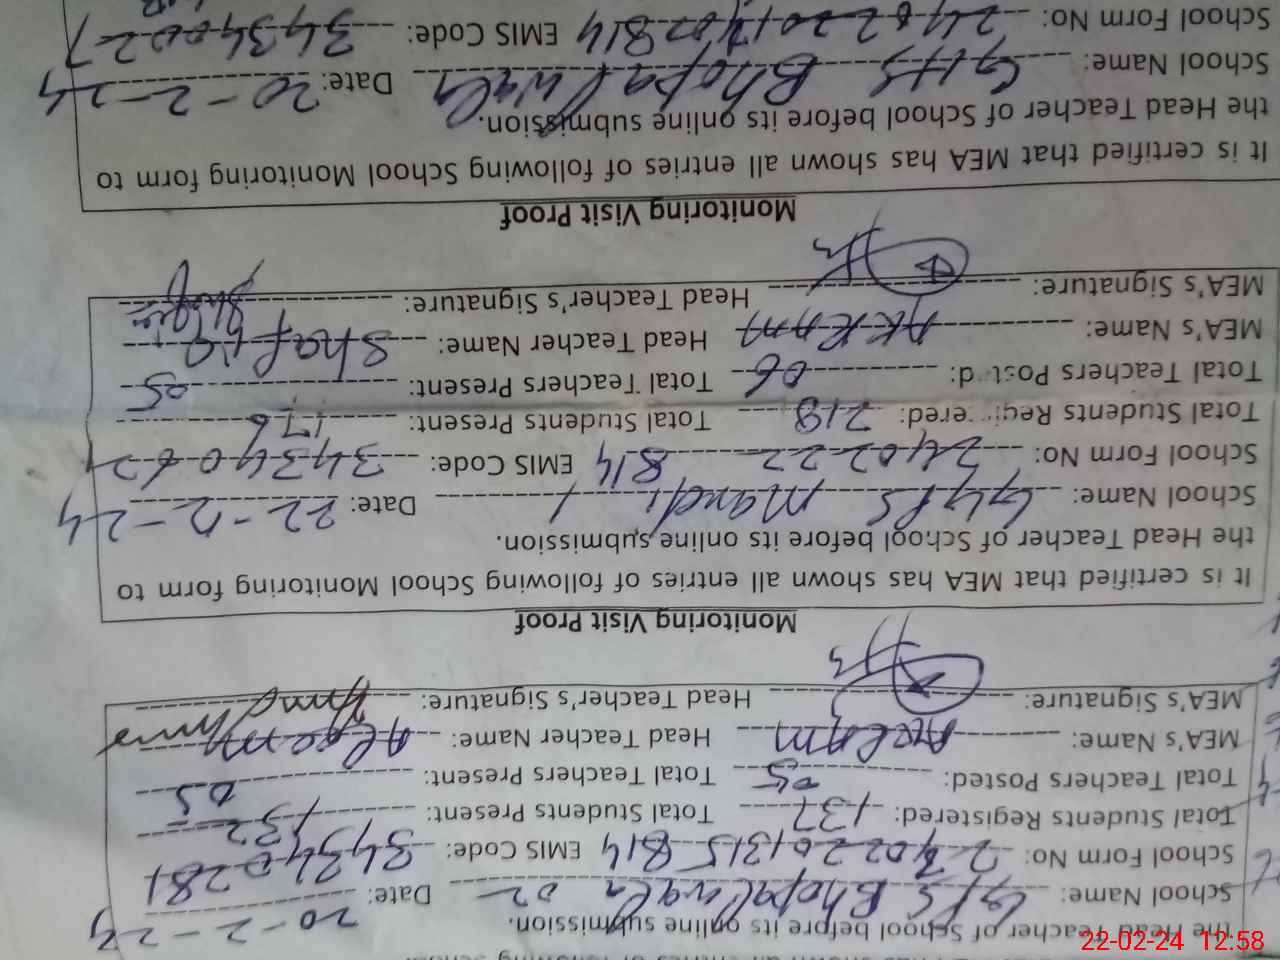 the Head Teacher of School before its online submission.
School Name: GPS Bhopalwala 02 Date: 20-2-24
School Form No: 240220131S 814 EMIS Code: 34340281
Total Students Registered: 137 Total Students Present: 132
Total Teachers Posted: 05 Total Teachers Present: 05
MEA's Name: AKRAM Head Teacher Name: Aleem
MEA's Signature: Head Teacher's Signature:
Monitoring Visit Proof
It is certified that MEA has shown all entries of following of School Monitoring form to
the Head Teacher of School before its online submission.
School Name: GGPS Mandi Date: 22-2-24
School Form No: 240222 814 EMIS Code: 34340621
Total Students Registered: 219 Total Students Present: 176
Total Teachers Posted: 06 Total Teachers Present: 05
MEA's Name: AKRAM Head Teacher Name: Shafqia
MEA's Signature: Head Teacher's Signature:
Monitoring Visit Proof
It is certified that MEA has shown all entries of following of School Monitoring form to
the Head Teacher of School before its online submission.
School Name: GHS Bhopalwala Date: 20-2-24
School Form No: EMIS Code: 34340027
22-02-24 12:58